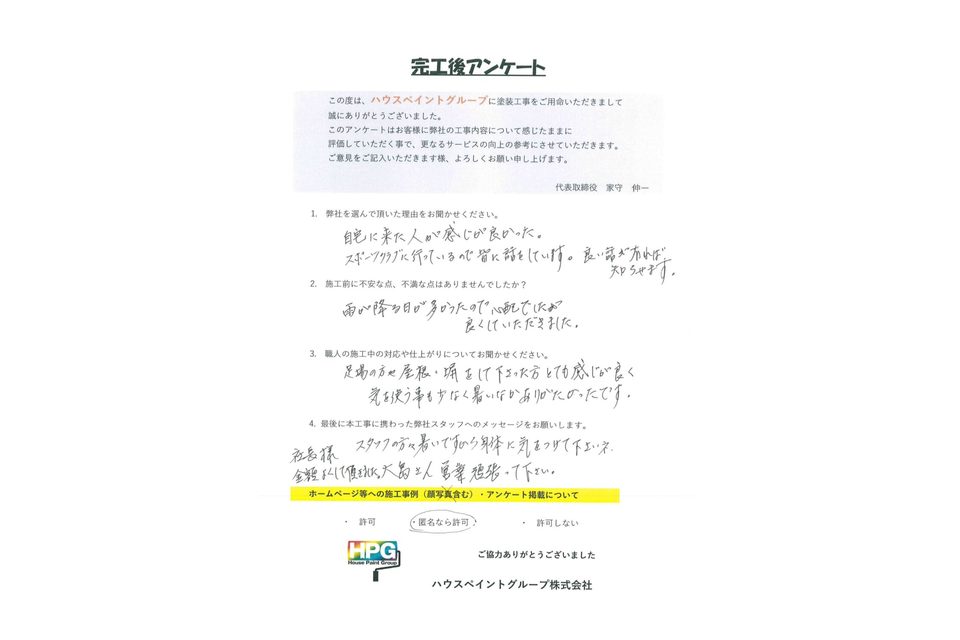 完工後アンケート
この度は、ハウスペイントグループに塗装工事をご用命いただきまして
誠にありがとうございました。
このアンケートはお客様に弊社の工事内容について感じたままに
評価していただく事で、更なるサービスの向上の参考にさせていただきます。
ご意見をご記入いただきます様、よろしくお願い申し上げます。
代表取締役　家守　伸一
1. 弊社を選んで頂いた理由をお聞かせください。
自宅に来た人が感じが良かった。
スポーツクラブに行っているので皆に話をしています。良い話が有れば
知らせます。
2. 施工前に不安な点、不満な点はありませんでしたか？
雨が降る日が多かったので心配でしたが
良くしていただきました。
3. 職人の施工中の対応や仕上がりについてお聞かせください。
足場の方や屋根・塀をして下さった方とても感じが良く
気を使う事も少なく暑いなかありがたかったです。
4. 最後に本工事に携わった弊社スタッフへのメッセージをお願いします。
スタッフの方々暑いですから身体に気をつけて下さいネ
社長様
金額よくして頂きました 大島さん営業頑張って下さい。
ホームページ等への施工事例（顔写真含む）・アンケート掲載について
・ 許可 ・匿名なら許可・ ・ 許可しない
HPG
House Paint Group
ご協力ありがとうございました
ハウスペイントグループ株式会社